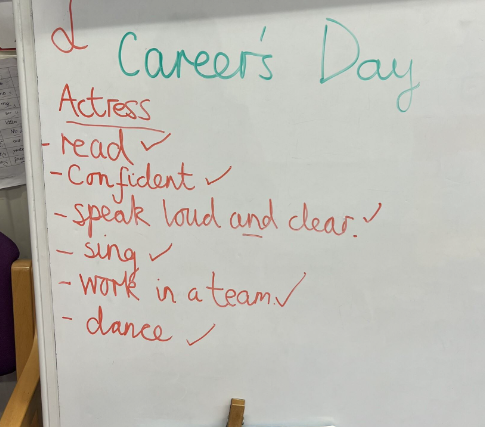 L
Career's Day
Actress
- read ✓
- Confident ✓
- speak loud and clear. ✓
- sing ✓
- work in a team. ✓
- dance ✓